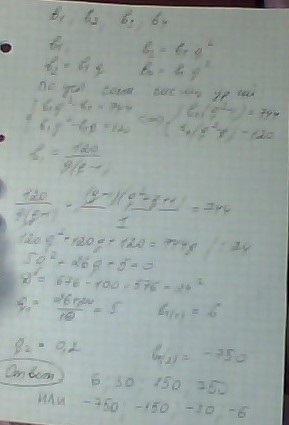 b₁, b₂, b₃, b₄
b₁, b₃ = b₁q²
b₂ = b₁q b₄ = b₁q³
{ b₁q³ - b₁ = 744 <=> { b₁(q³-1) = 744
b₁q² - b₁q = 120 b₁(q²-q) = 120
b₁ = 120 / q(q-1)
120 / q(q-1) · (q-1)(q²+q+1) / 1 = 744
120q² + 120q + 120 = 744q | : 24
5q² - 26q + 5 = 0
D = 676 - 100 = 576 = 24²
q₁ = = 5 b₁₍₁₎ = 6
q₂ = 0,2 b₁₍₂₎ = -750
Ответ
6, 30, 150, 750
или -750, -150, -30, -6